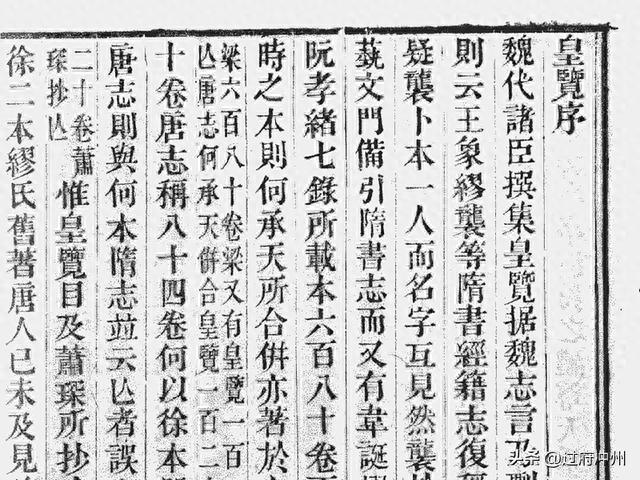 皇覽序
魏代諸臣撰集皇覽据魏志言乃劉
則云王象繆襲等隋書經籍志復
疑襲卜本一人而名字互見然襲
蓺文門備引隋書志而又有韋誕
阮孝緒七錄所載本六百八十卷
時之本則何承天所合併亦著於
梁六百八十卷梁又有皇覽一百
亾唐志何承天併合皇覽一百二
十卷唐志稱八十四卷何以徐本
唐志則與何本隋志竝云亾者誤
二十卷蕭
琛抄亾
惟皇覽目及蕭琛所抄
徐二本繆氏舊著唐人已未及見
头条 @过府冲州